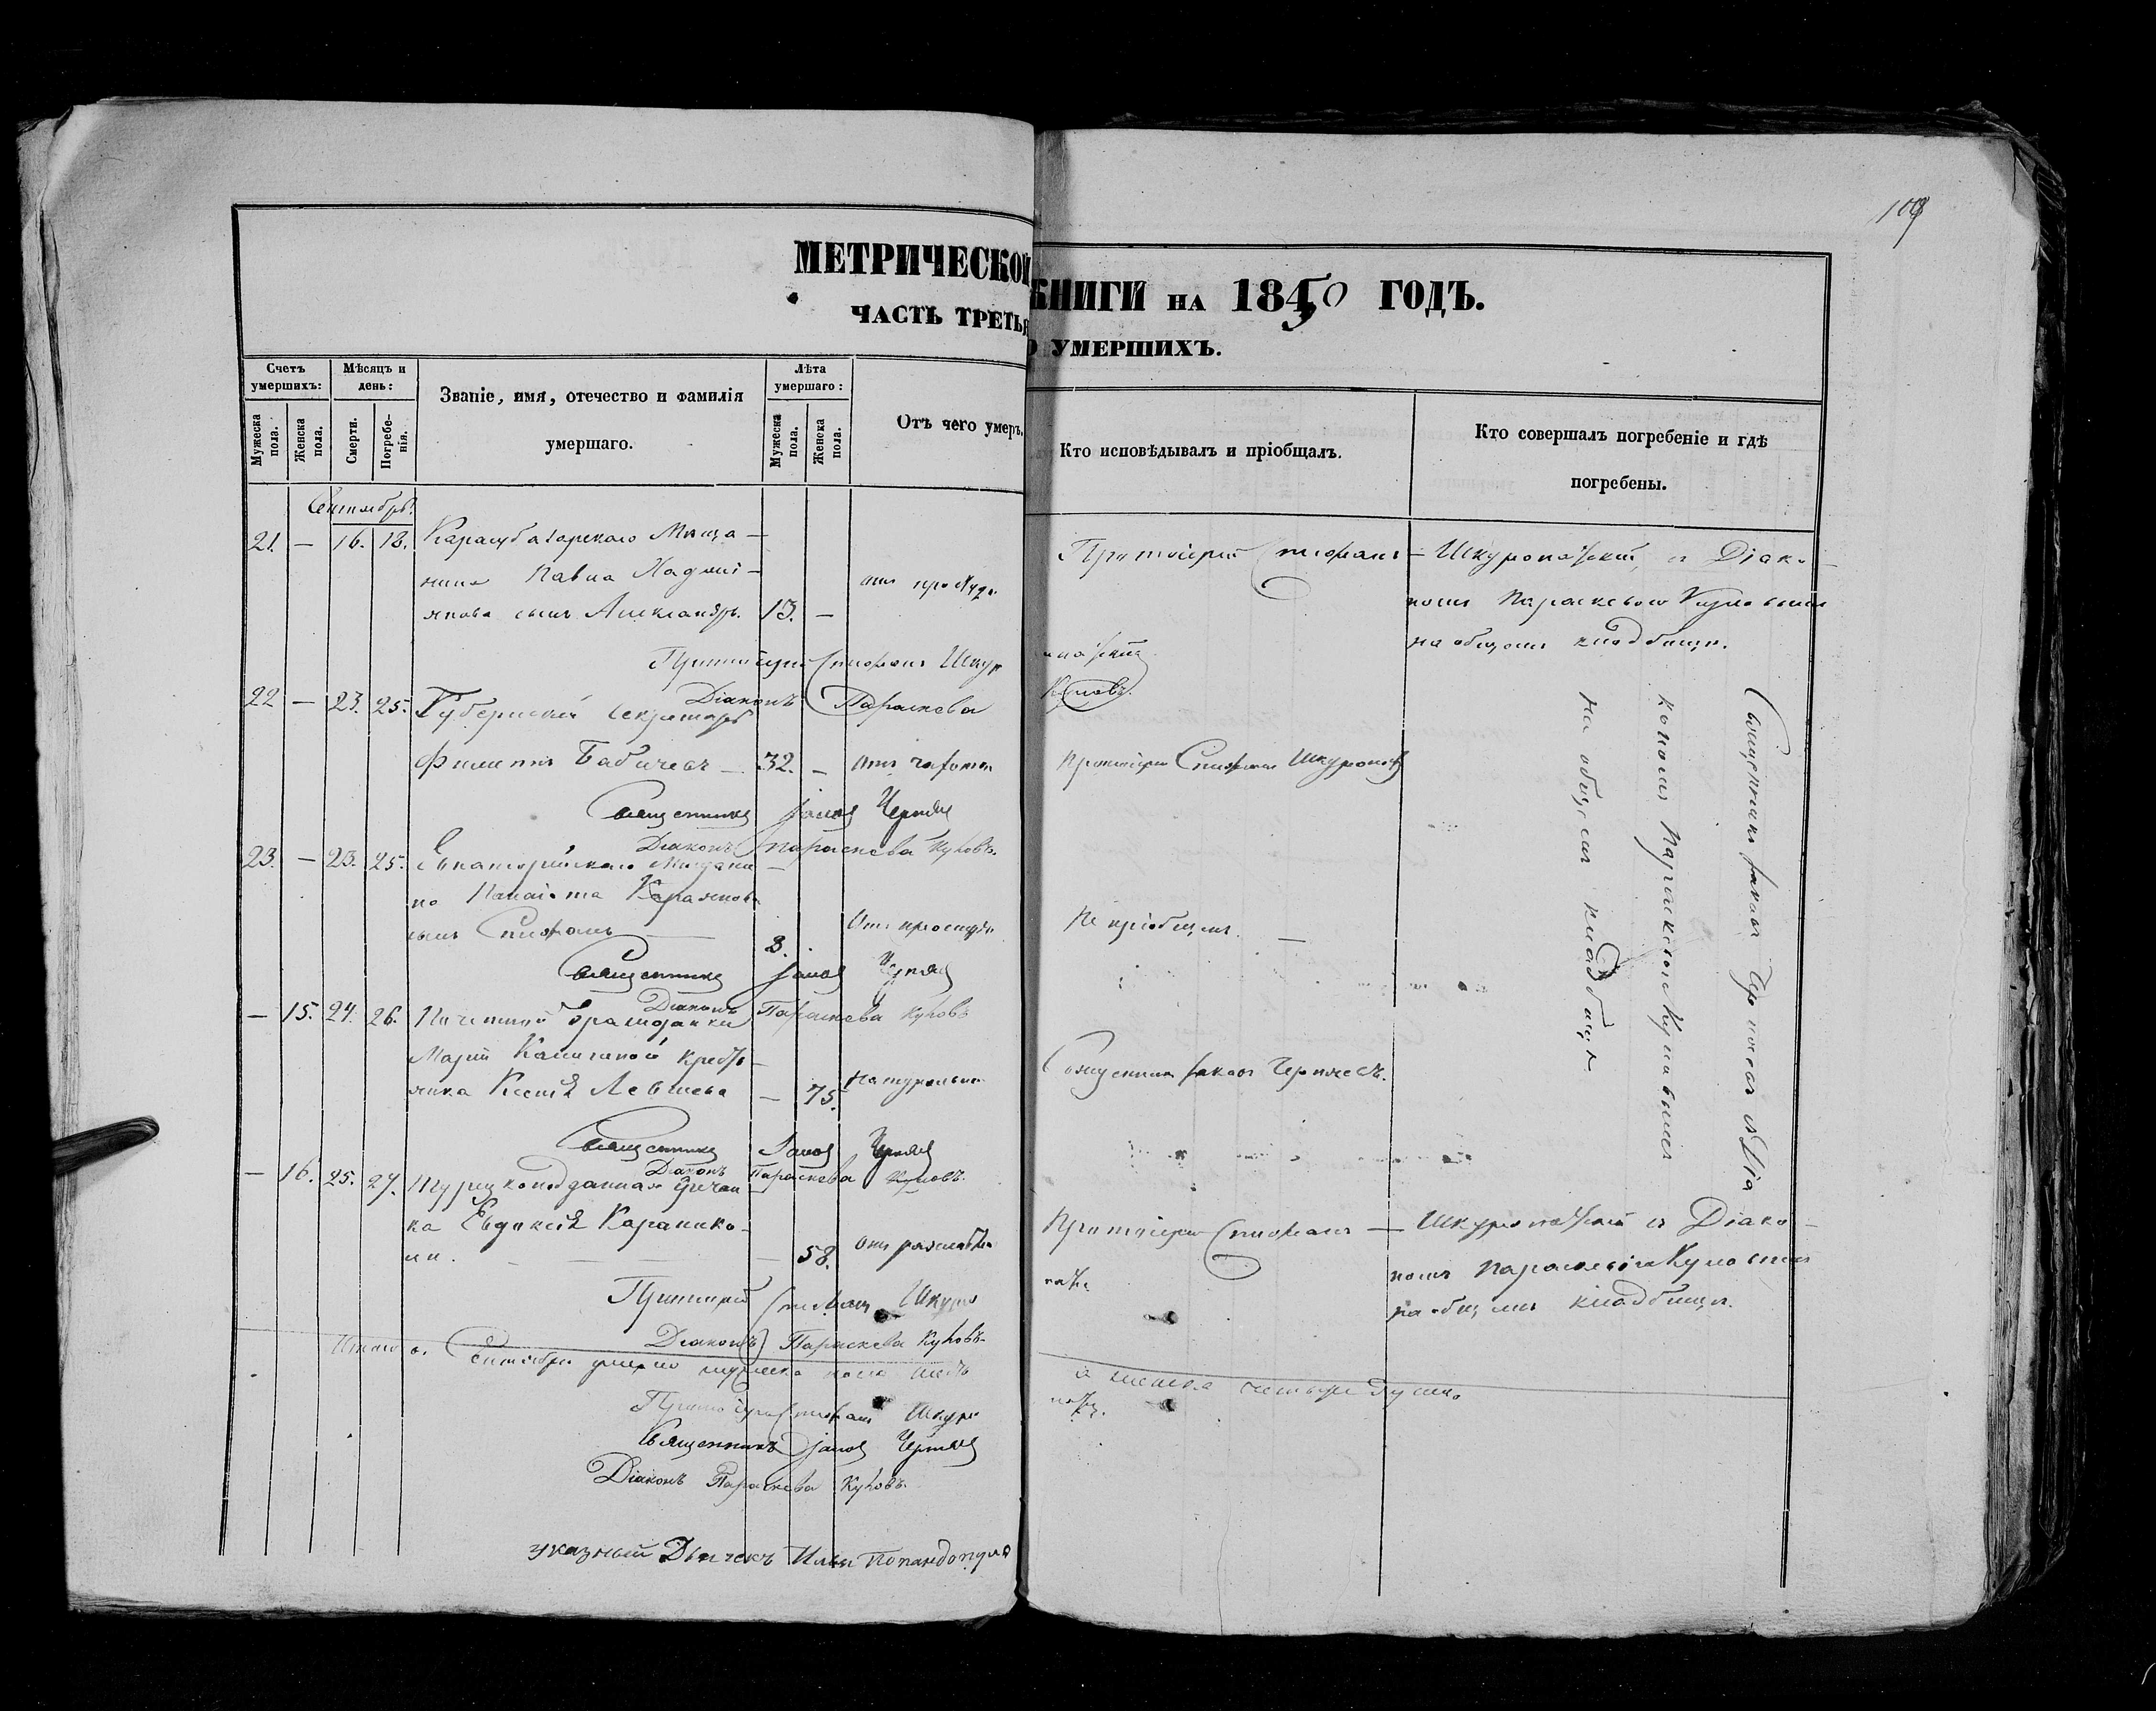 109
МЕТРИЧЕСКОЙ КНИГИ НА 1850 ГОДЪ.
ЧАСТЬ ТРЕТЬЯ О УМЕРШИХЪ.
Счетъ умершихъ:
Мужеска пола.
Женска пола.
Мѣсяцъ и день:
Смерти.
Погребенія.
Званіе, имя, отечество и фамилія умершаго.
Лѣта умершаго:
Мужеска пола.
Женска пола.
Отъ чего умеръ.
Кто исповѣдывалъ и пріобщалъ.
Кто совершалъ погребеніе и гдѣ погребены.
Сентябрь.
21. — 16. 18. Карасубазарскаго Мѣща— Протоіерей Стефанъ — Шкуропатскій съ Діако-
нина Павла отъ простуды номъ Параскевою Куповымъ
сынъ Александръ. 13. — на общемъ кладбищѣ.
Протоіерей Стефанъ Шкуропатскій
Діаконъ Параскева Куповъ.
22 — 23. 25. Губернскій Секретарь
Филиппъ Бабичевъ — 32. — отъ чахотки Протоіерей Стефанъ Шкуропатскій
Священникъ Іаковъ Черняевъ
Діаконъ Параскева Куповъ.
23. — 23. 25. Евпаторійскаго Мѣщани—
на Панаіота
сынъ Стефанъ — 3. Отъ простуды Не пріобщенъ. —
Священникъ Іаковъ Черняевъ
Діаконъ Параскева Куповъ
— 15. 24. 26. Почетной Гражданки
Маріи Качіоной крестья—
нка Ксенія Левшева — 75. Натурально Священникъ Іаковъ Черняевъ.
Священникъ Іаковъ Черняевъ
Діаконъ Параскева Куповъ.
Священникъ Іаковъ Черняевъ съ Діа
кономъ Параскевою Куповымъ
на общемъ кладбищѣ
— 16. 25. 27. Турецкоподданная Гречан
ка Евдоксія Караники- Протоіерей Стефанъ — Шкуропатскій съ Діако-
ли. — — — 58. отъ разслабленія номъ Параскевою Куповымъ
на общемъ кладбищѣ.
Протоіерей Стефанъ Шкуропатскій
Діаконъ Параскева Куповъ.
Итого въ Сентябрѣ умерло мужеска пола шесть а женска четыре души.
Протоіерей Стефанъ Шкуропатскій.
Священникъ Іаковъ Черняевъ
Діаконъ Параскева Куповъ.
указный Дьячекъ Илья Попандопуло